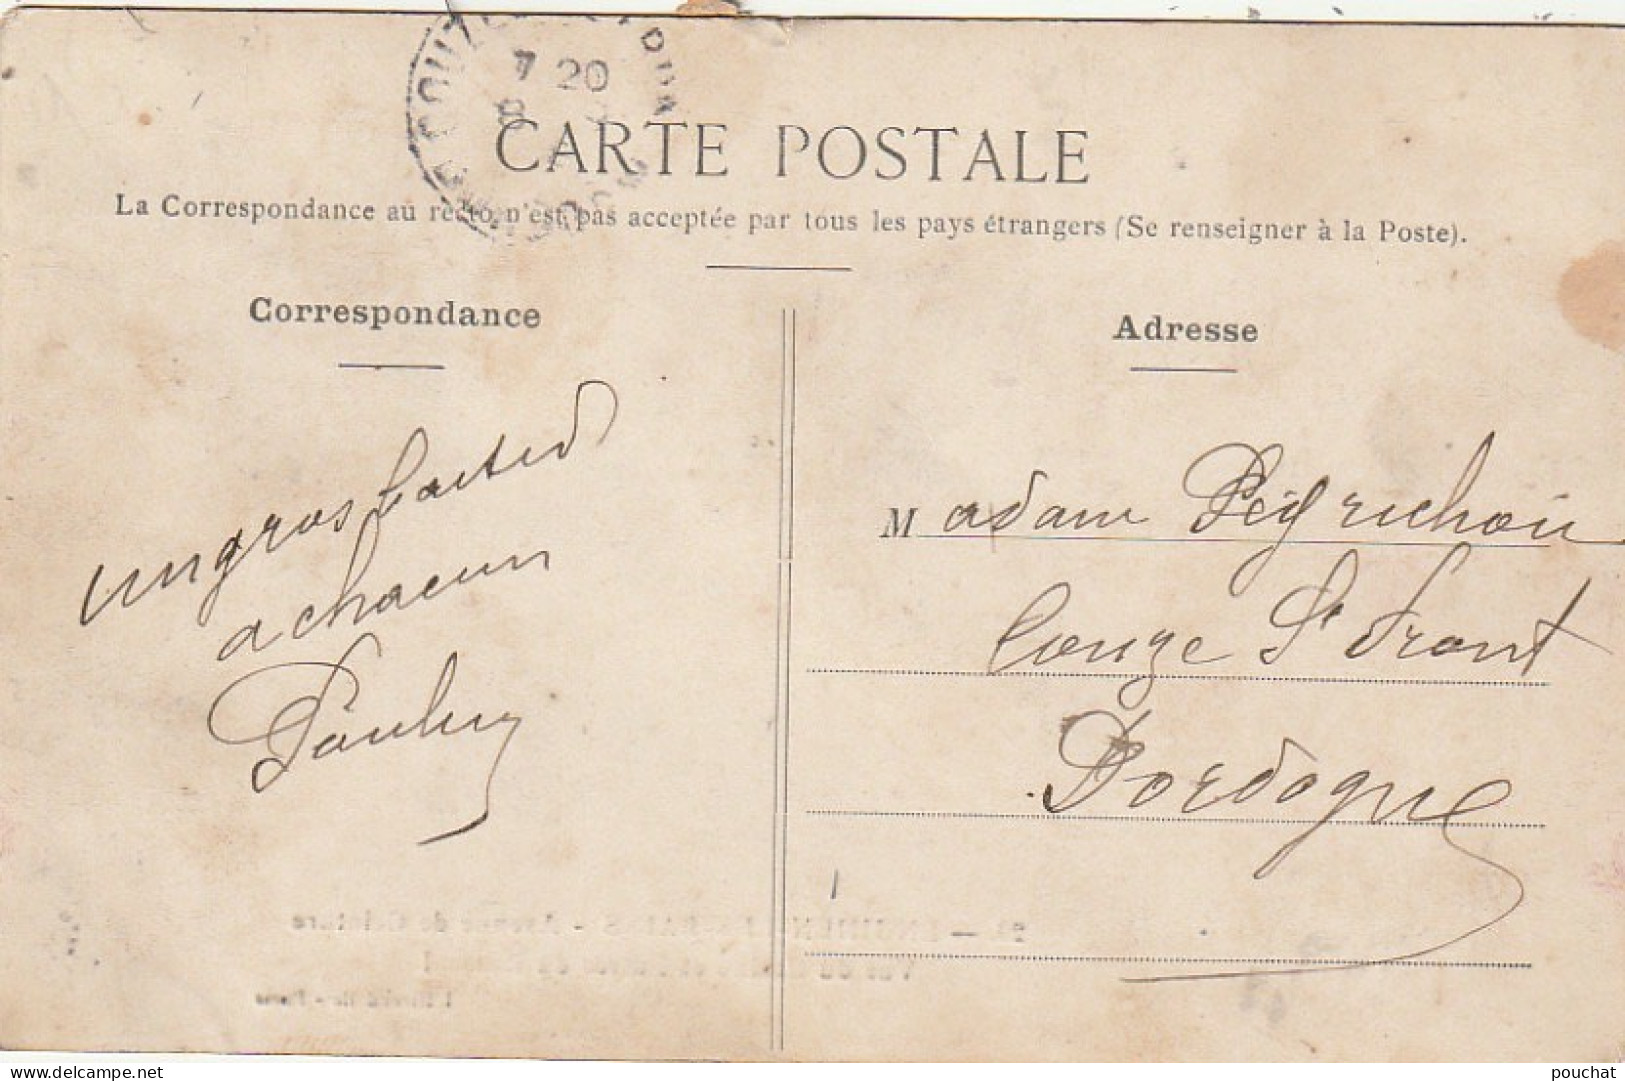 7 20
CARTE POSTALE
La Correspondance au recto n'est pas acceptée par tous les pays étrangers (Se renseigner à la Poste).
Correspondance
un gros
a chacun
Adresse
Madam Peyrichou
Couze St Front
Dordogne
delcampe.net
pouchat